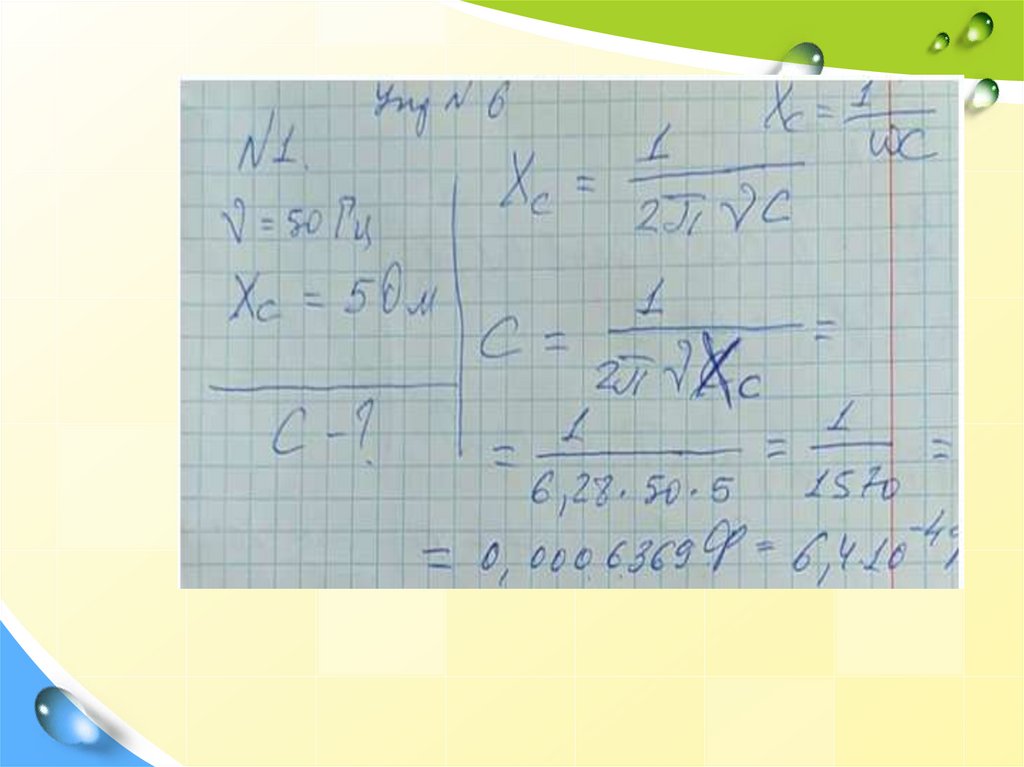 Упр N 6
Xc = 1/ωC
N1.
ν = 50 Гц
Xc = 5 Ом
C - ?
Xc = 1/2π ν C
C = 1/2π ν Xc =
= 1/6,28·50·5 = 1/1570 =
= 0,0006369 Ф = 6,4·10⁻⁴